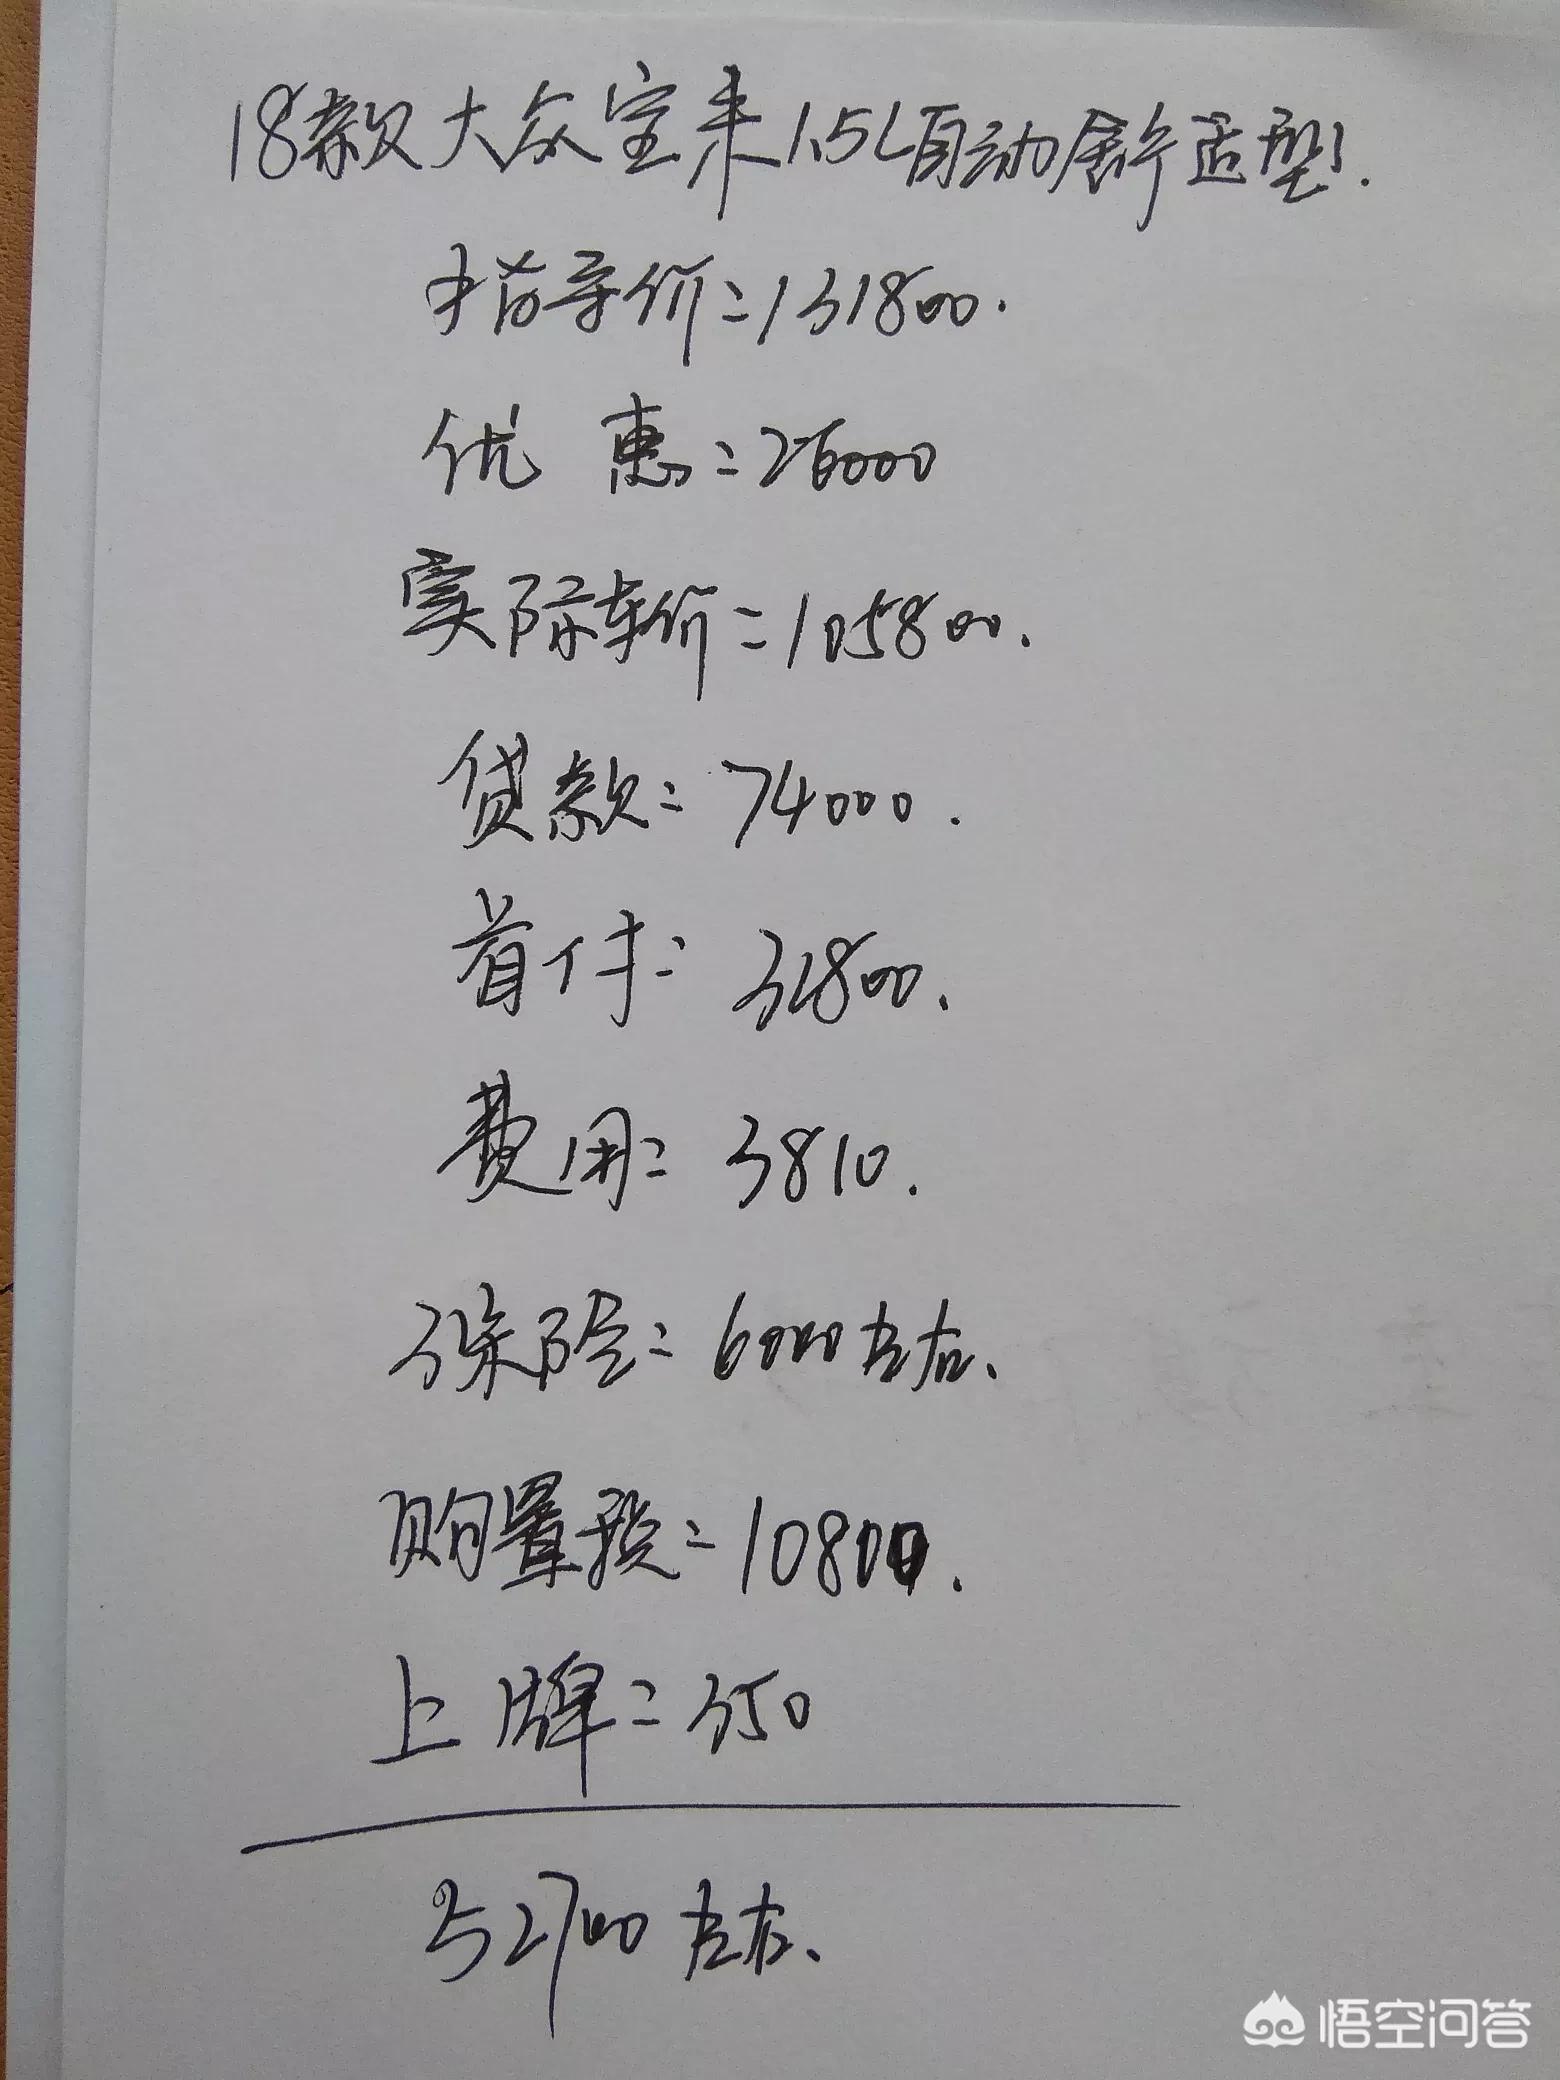 18款大众宝来1.5L自动舒适型.
指导价=131800.
优 惠=26000
实际车价=105800.
贷款=74000.
首付=31800.
费用=3810.
保险=6000左右、
购置税=10800.
上牌=350
52700左右、
悟空问答